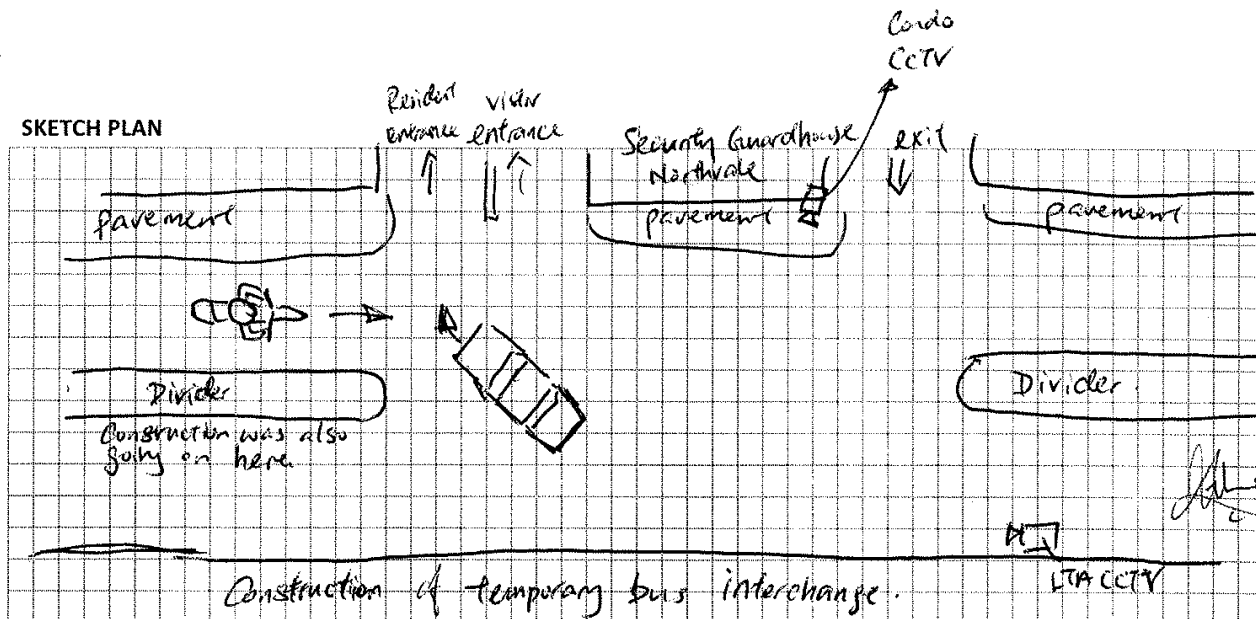 Condo
CCTV
SKETCH PLAN
Resident
entrance
visitor
entrance
Security Guardhouse
Northvale
exit
pavement
pavement
pavement
Divider
Divider.
Construction was also
going on here.
LTA CCTV
Construction of temporary bus interchange.